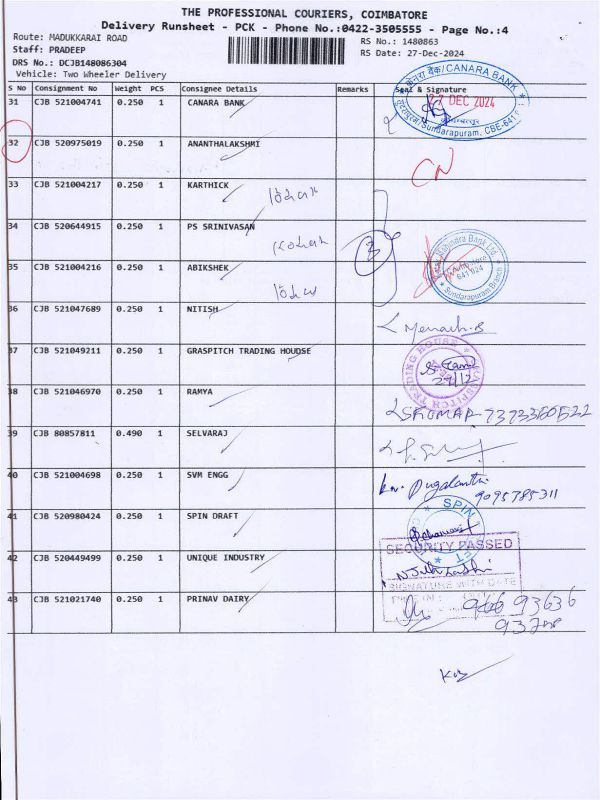 THE PROFESSIONAL COURIERS, COIMBATORE
Delivery Runsheet - PCK - Phone No.:0422-3505555 - Page No.:4
Route: MADUKKARAI ROAD
Staff: PRADEEP
RS No.: 1480863
RS Date: 27-Dec-2024
DRS No.: DCJB148086304
Vehicle: Two Wheeler Delivery
S No Consignment No Weight PCS Consignee Details Remarks Seal & Signature
31 CJB 521004741 0.250 1 CANARA BANK
केनरा बैंक/CANARA BANK
27 DEC 2024
Sundarapuram, CBE-641
32 CJB 520975019 0.250 1 ANANTHALAKSHMI
CN
33 CJB 521004217 0.250 1 KARTHICK
34 CJB 520644915 0.250 1 PS SRINIVASAN
3
Mahindra Bank Ltd
641 024
Sundarapuram Branch
35 CJB 521004216 0.250 1 ABIKSHEK
36 CJB 521047689 0.250 1 NITISH
37 CJB 521049211 0.250 1 GRASPITCH TRADING HOUDSE
GRASPITCH TRADING HOUSE
27/12
38 CJB 521046970 0.250 1 RAMYA
39 CJB 80857811 0.490 1 SELVARAJ
40 CJB 521004698 0.250 1 SVM ENGG
9095785311
41 CJB 520980424 0.250 1 SPIN DRAFT
SPIN
42 CJB 520449499 0.250 1 UNIQUE INDUSTRY
SECURITY PASSED
SIGNATURE WITH DATE
43 CJB 521021740 0.250 1 PRINAV DAIRY